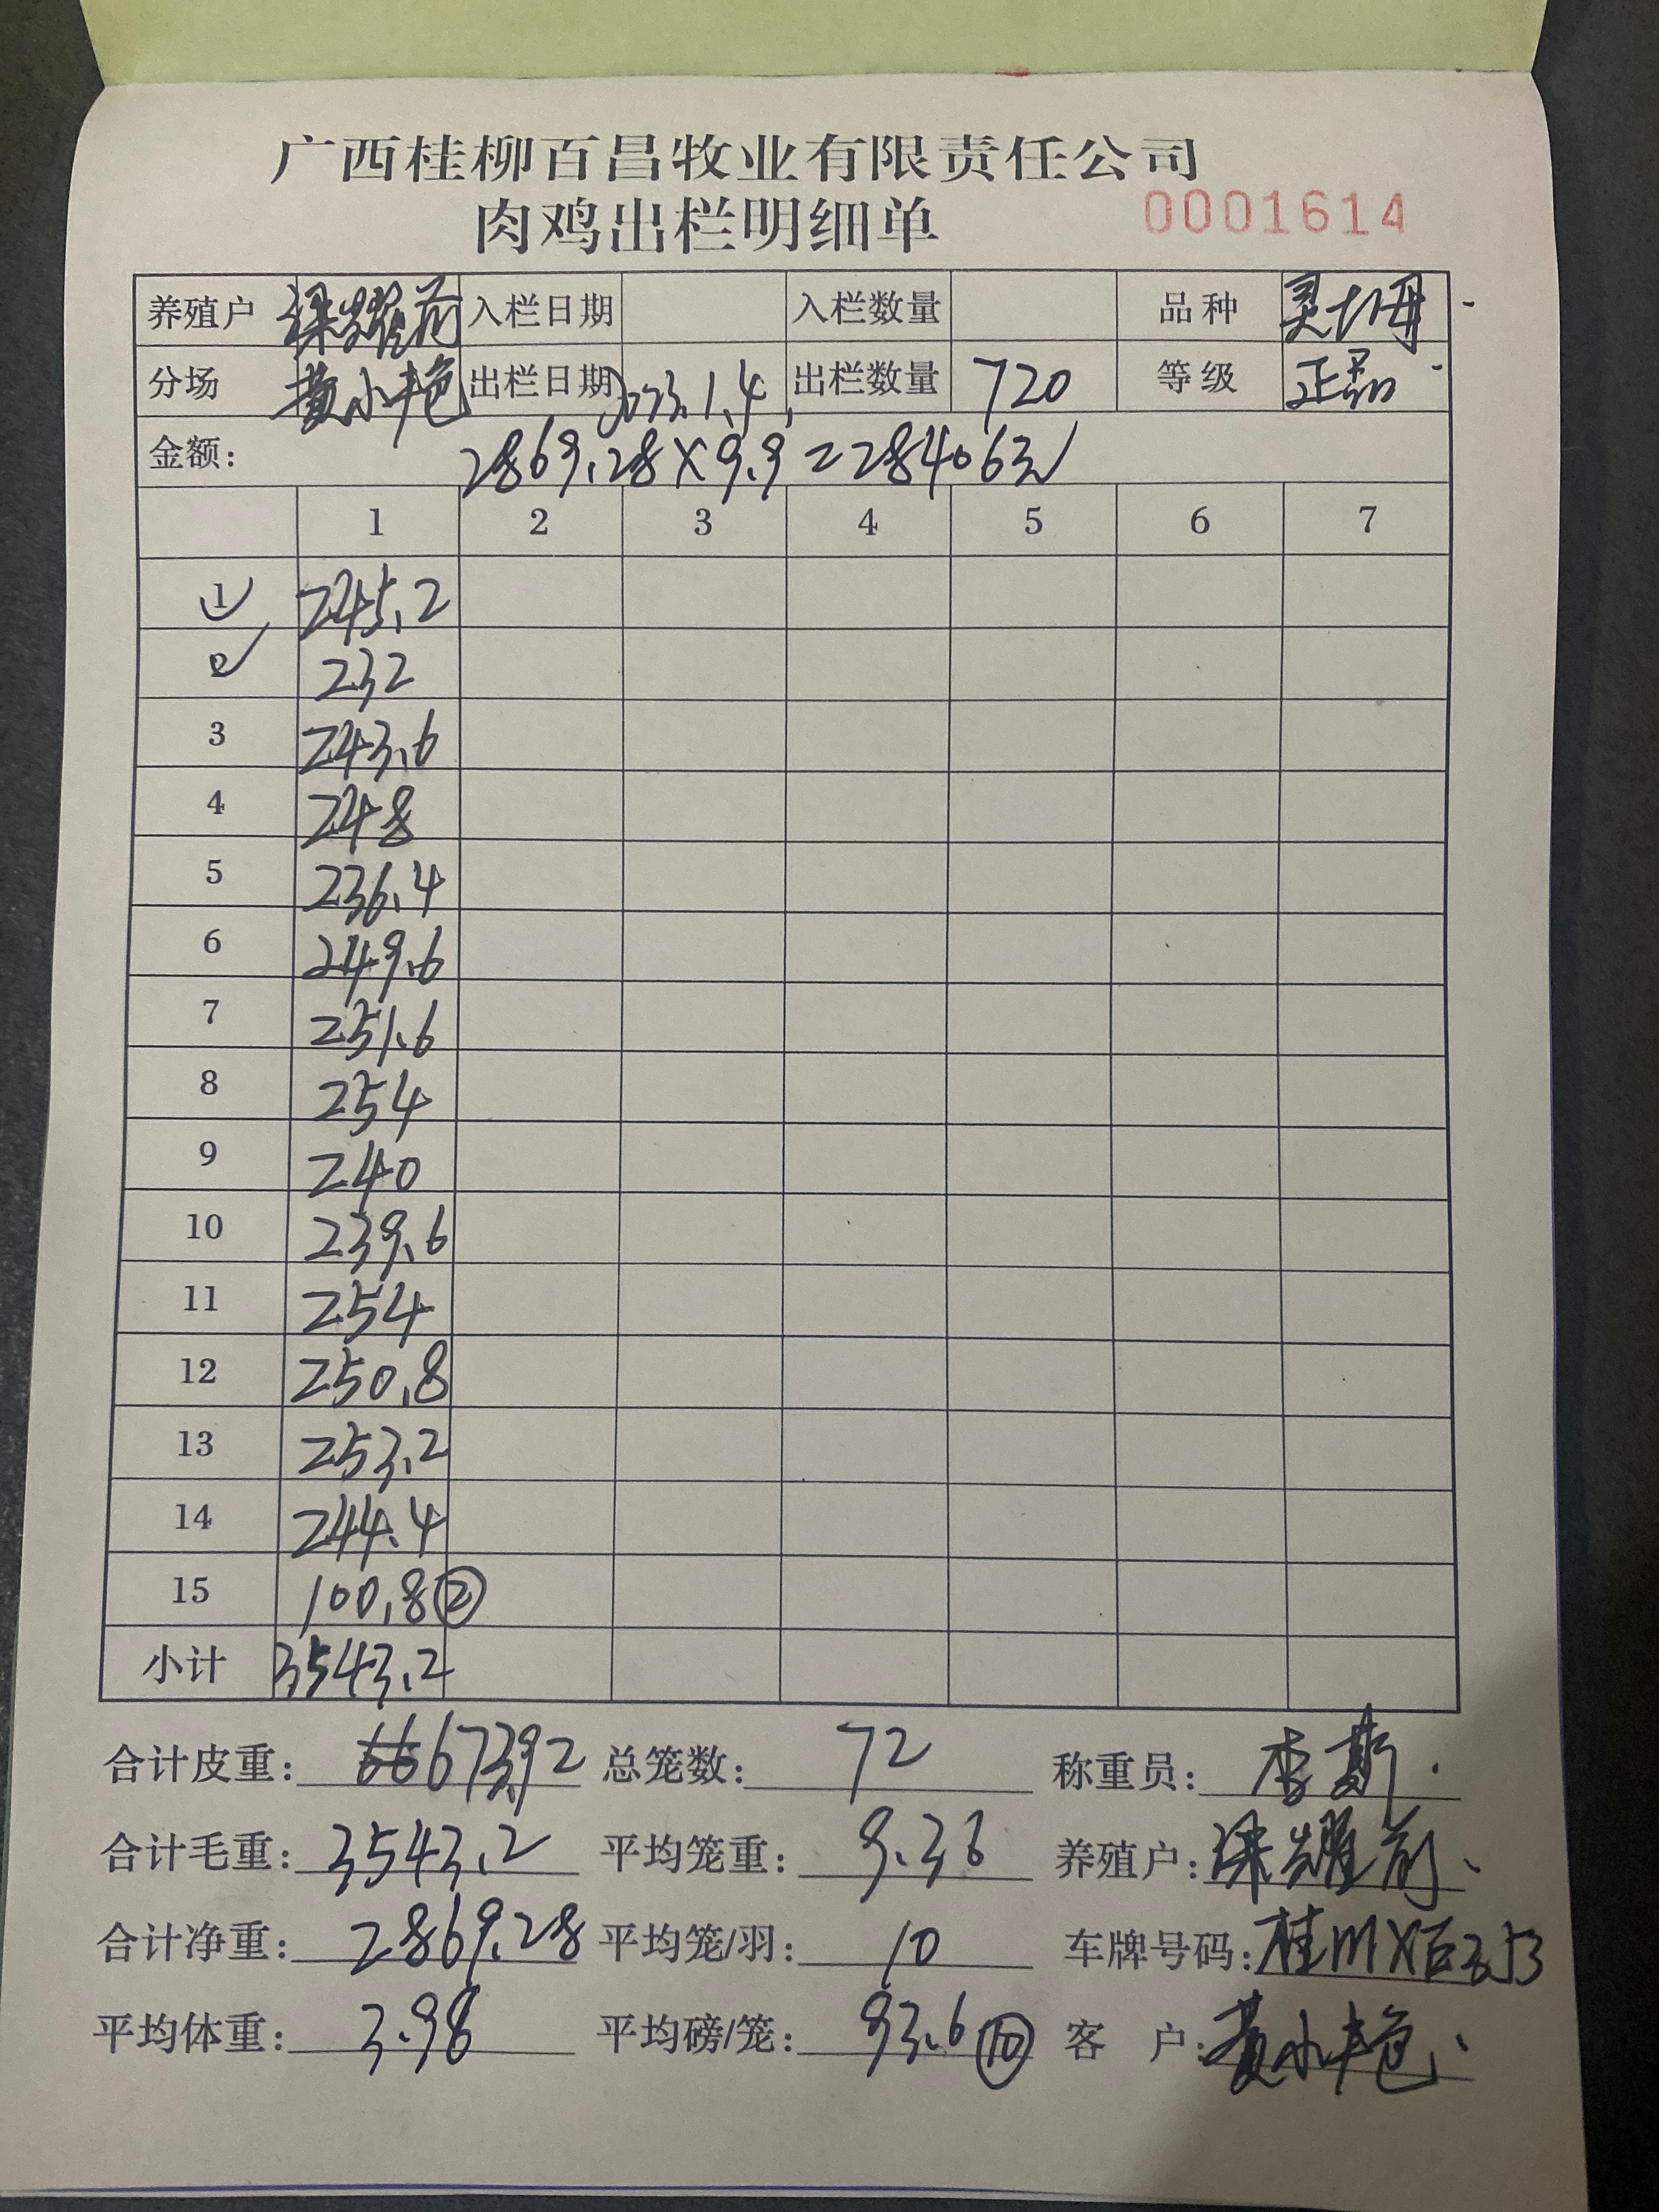 广西桂柳百昌牧业有限责任公司
肉鸡出栏明细单 0001614
养殖户 梁耀前 入栏日期 入栏数量 品种
分场 黄小艳 出栏日期 2023.1.4 出栏数量 720 等级 正品
金额: 2869.28×9.9=28406元
1 2 3 4 5 6 7
1 245.2
2 232
3 243.6
4 248
5 236.4
6 249.6
7 251.6
8 254
9 240
10 239.6
11 254
12 250.8
13 253.2
14 244.4
15 100.8②
小计 3543.2
合计皮重: 673.92 总笼数: 72 称重员: 李斯
合计毛重: 3543.2 平均笼重: 9.36 养殖户: 梁耀前
合计净重: 2869.28 平均笼/羽: 10 车牌号码: 桂
平均体重: 3.98 平均磅/笼: 93.6⑩ 客 户: 黄小艳